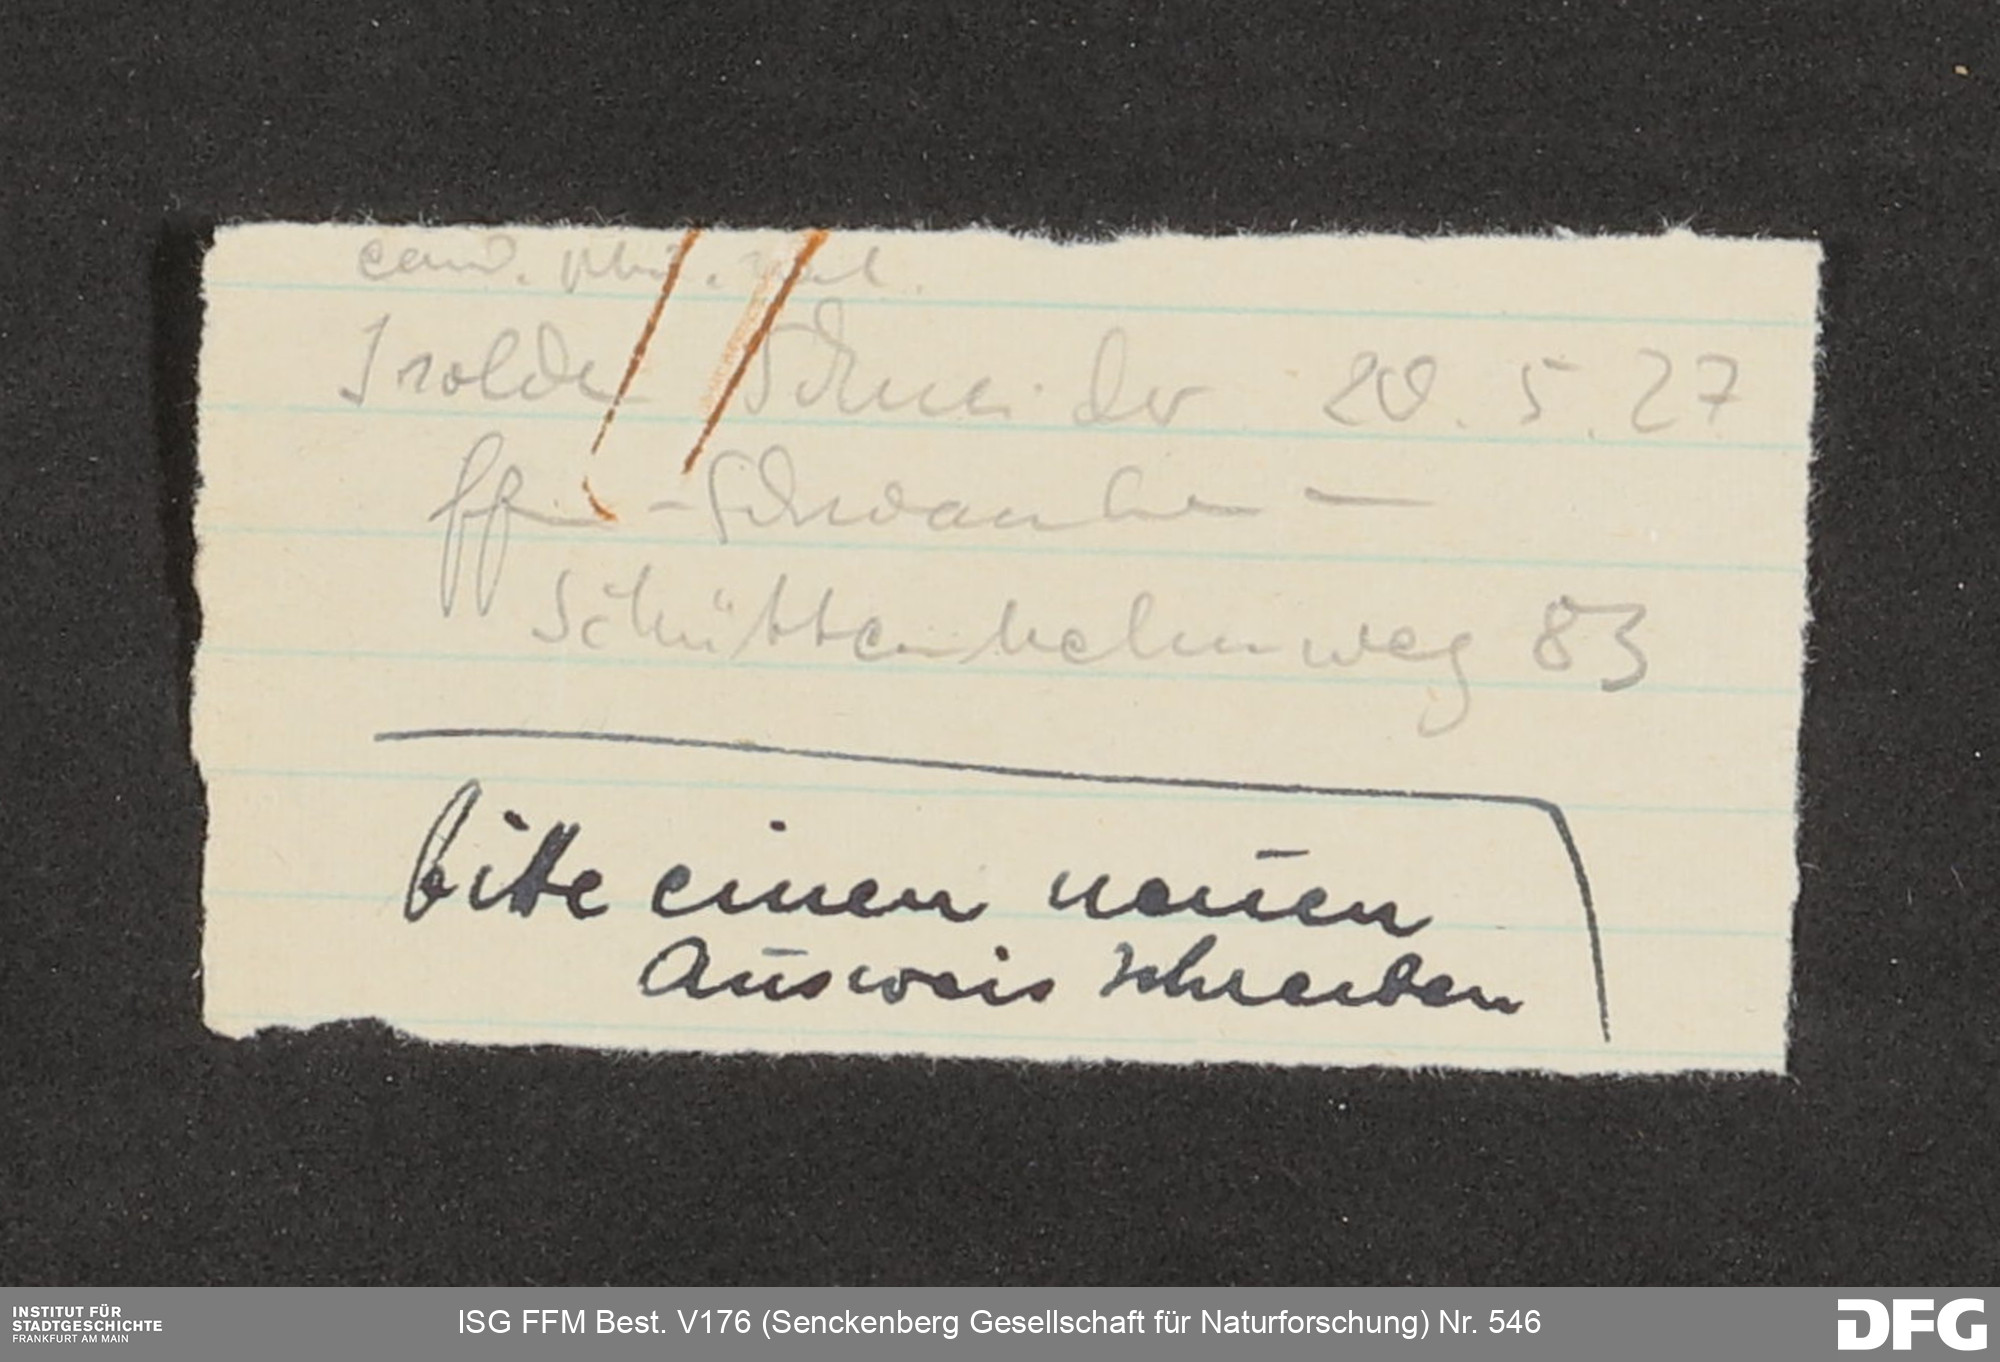 cand. phil. nat.
Isolde Schneider 20. 5. 27
Ffm - Schwanheim -
Schüttenhelmweg 83
bitte einen neuen
Ausweis schreiben
INSTITUT FÜR
STADTGESCHICHTE
FRANKFURT AM MAIN
ISG FFM Best. V176 (Senckenberg Gesellschaft für Naturforschung) Nr. 546
DFG